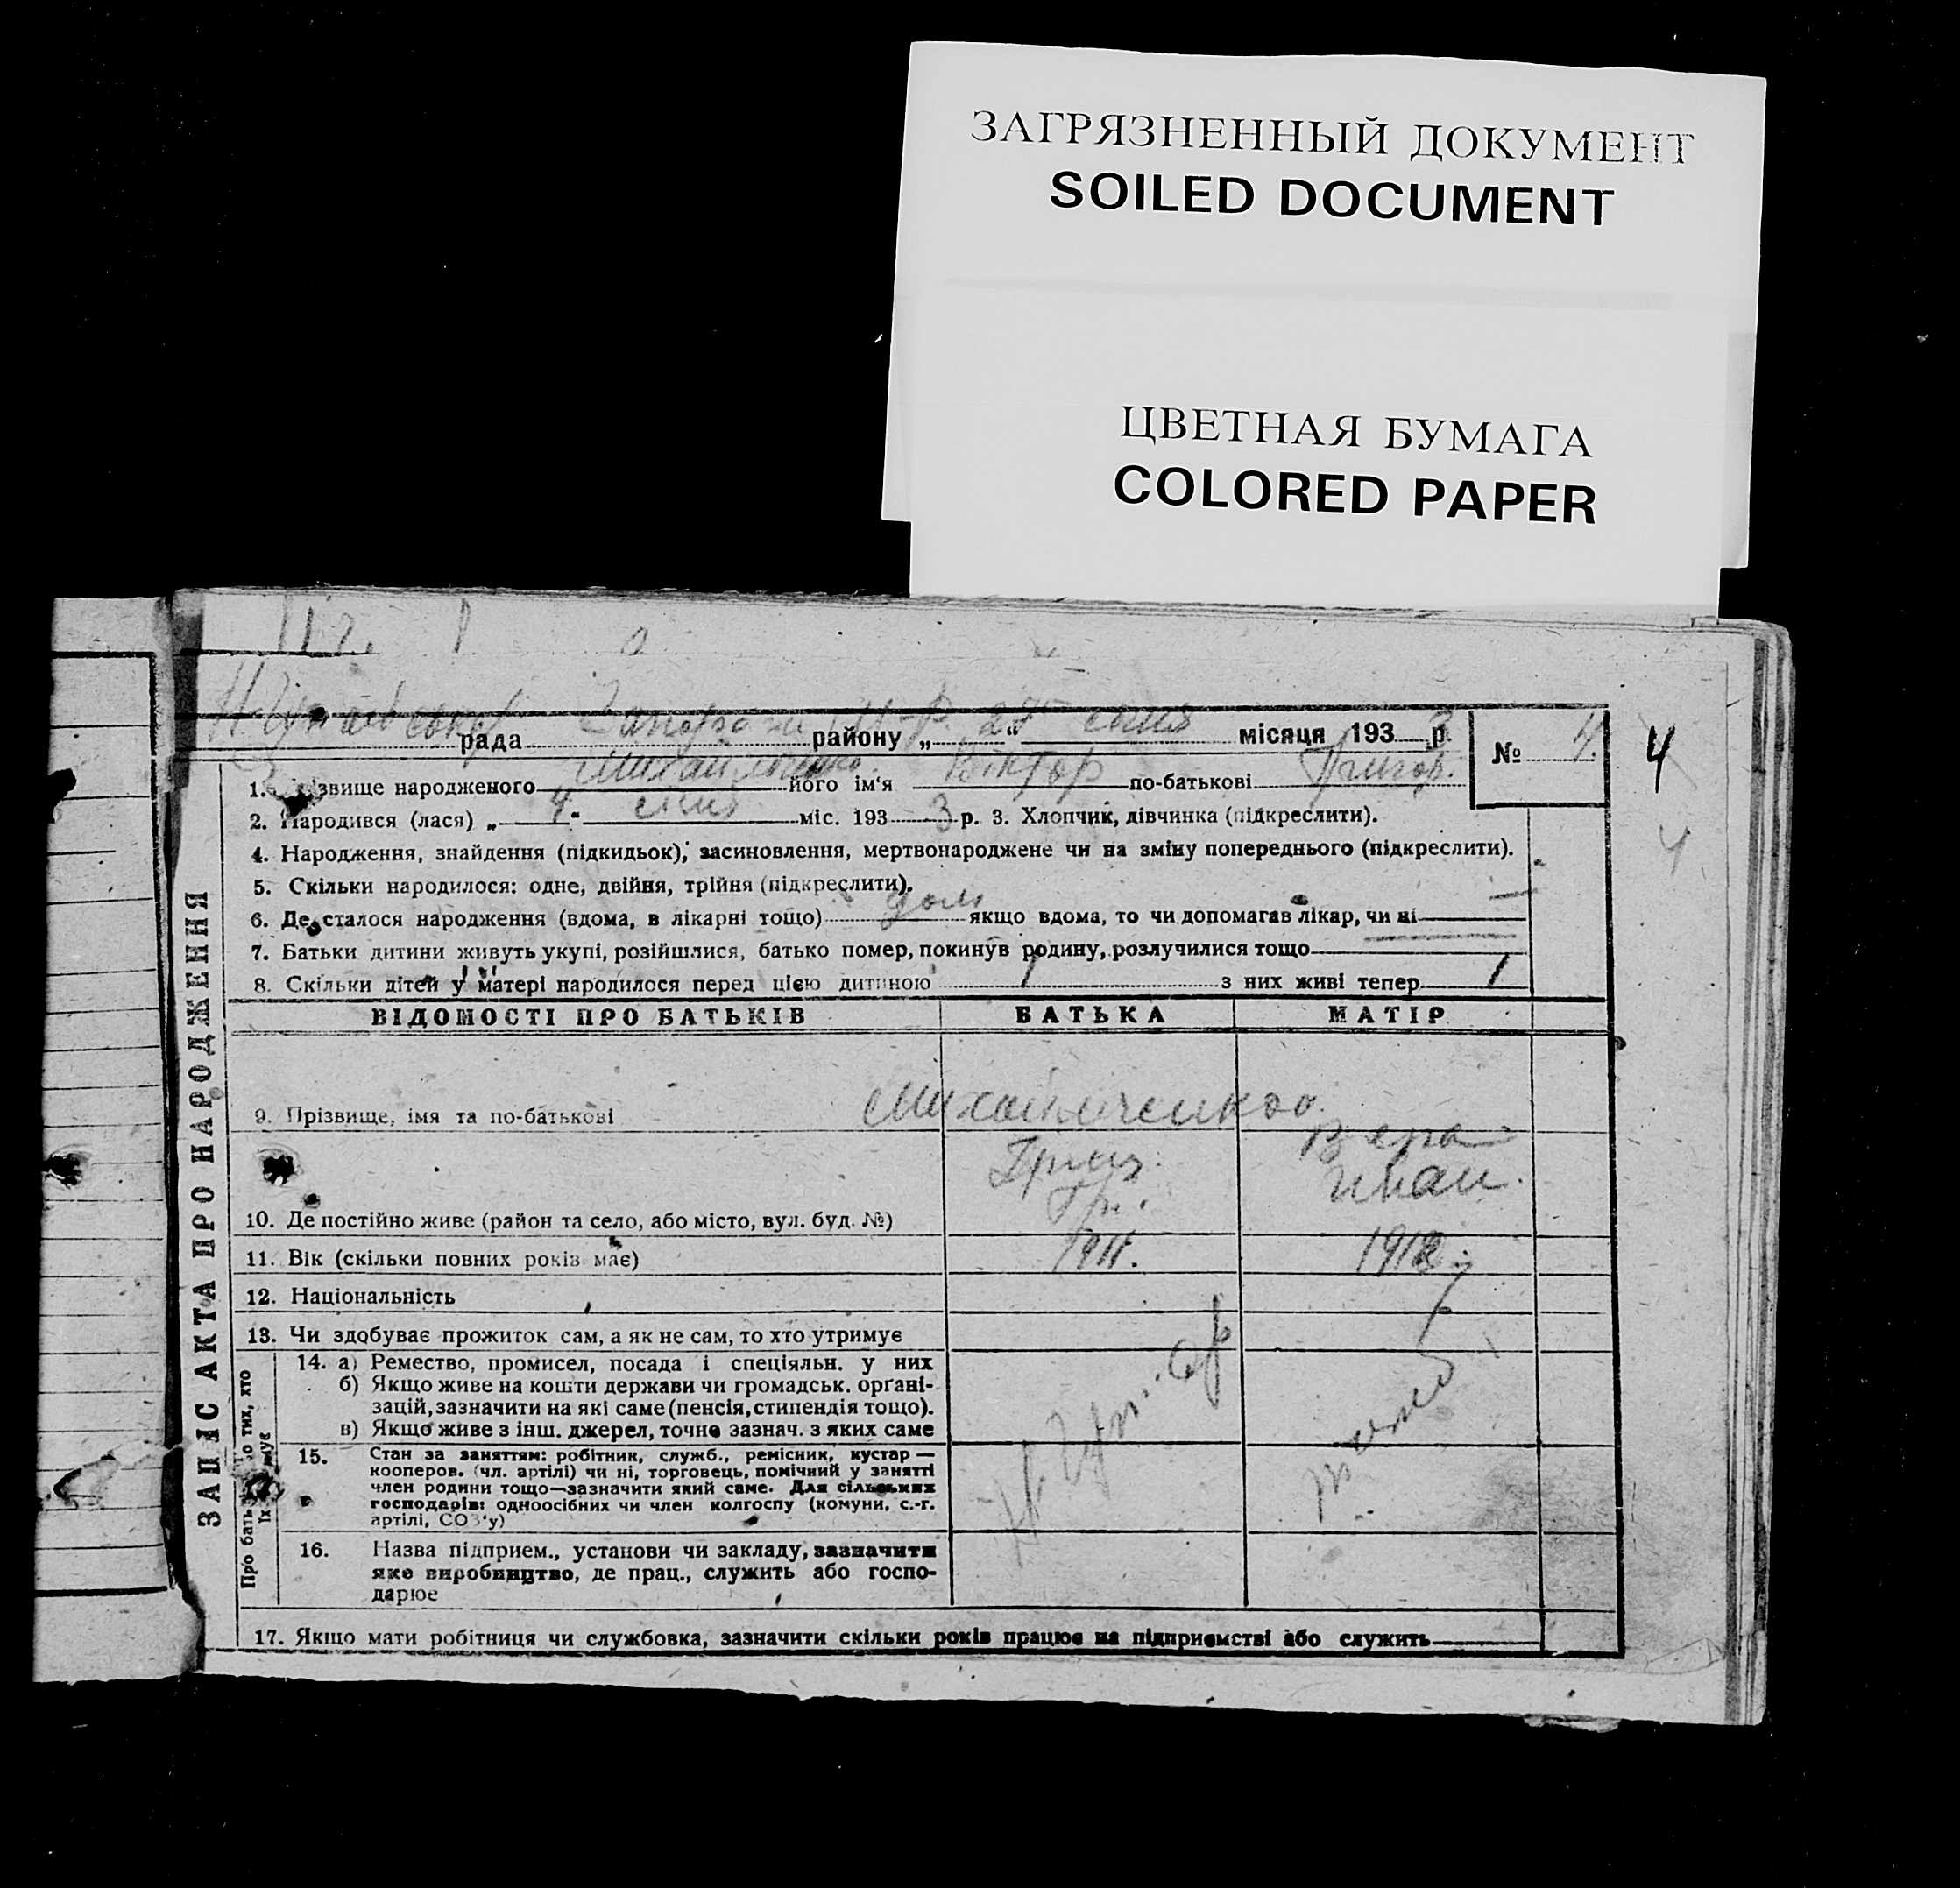 ЗАГРЯЗНЕННЫЙ ДОКУМЕНТ
SOILED DOCUMENT
ЦВЕТНАЯ БУМАГА
COLORED PAPER
рада района „ “ місяця 193 3 р. № 4. 4
1. звище народженого Михайличенко його ім‘я Віктор по-батькові Григор.
2. Народився (лася) „ 4 “ міс. 193 3 р. 3. Хлопчик, дівчинка (підкреслити).
4. Народження, знайдення (підкидьок), засиновлення, мертвонароджене чи на зміну попереднього (підкреслити).
4
5. Скільки народилося: одне, двійня, трійня (підкреслити).
6. Де сталося народження (вдома, в лікарні тощо) дом якщо вдома, то чи допомагав лікар, чи ні
7. Батьки дитини живуть укупі, розійшлися, батько помер, покинув родину, розлучилися тощо
8. Скільки дітей у матері народилося перед цією дитиною 1 з них живі тепер 1
ЗАПИС АКТА ПРО НАРОДЖЕННЯ
ВІДОМОСТІ ПРО БАТЬКІВ БАТЬКА МАТІР
9. Прізвище, імя та по-батькові Михайличенко
Григ. Вера
Гр. Иван.
10. Де постійно живе (район та село, або місто, вул. буд. №)
11. Вік (скільки повних років має) 1911. 1912
12. Національність
13. Чи здобуває прожиток сам, а як не сам, то хто утримує
14. а) Ремество, промисел, посада і спеціяльн. у них
б) Якщо живе на кошти держави чи громадськ. органі-
зацій, зазначити на які саме (пенсія, стипендія тощо).
в) Якщо живе з інш. джерел, точно зазнач. з яких саме
15. Стан за заняттям: робітник, служб., ремісник, кустар —
кооперов. (чл. артілі) чи ні, торговець, помічний у занятті
член родини тощо—зазначити який саме. Для сільських
господарів: одноосібних чи член колгоспу (комуни, с.-г.
артілі, СОЗ‘у)
16. Назва підприєм., установи чи закладу, зазначити
яке виробництво, де прац., служить або госпо-
дарює
17. Якщо мати робітниця чи службовка, зазначити скільки років працює на підприємстві або служить